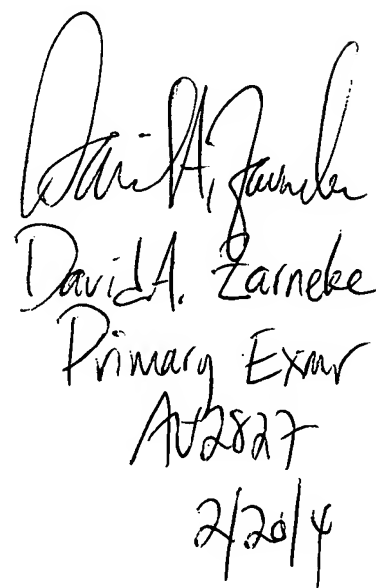 David A. Zarneke
David A. Zarneke
Primary Exmr
AU2827
2/20/4